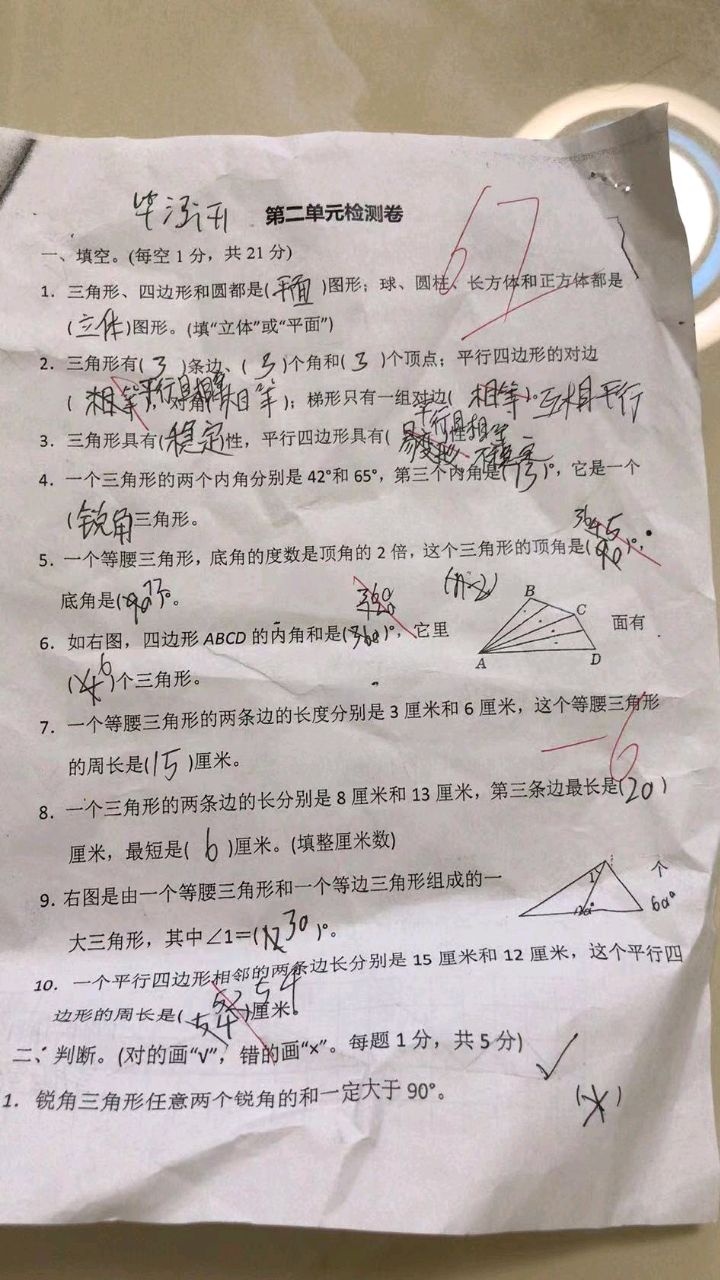 第二单元检测卷
67
一、填空。(每空 1 分，共 21 分)
1. 三角形、四边形和圆都是(平面)图形；球、圆柱、长方体和正方体都是
(立体)图形。(填“立体”或“平面”)
2. 三角形有(3)条边、(3)个角和(3)个顶点；平行四边形的对边
(相等)，对角(相等)；梯形只有一组对边(相等)。互相平行
平行且相等
3. 三角形具有(稳定)性，平行四边形具有(易变形)性
4. 一个三角形的两个内角分别是 42°和 65°，第三个内角是(73)°，它是一个
(锐角)三角形。
5. 一个等腰三角形，底角的度数是顶角的 2 倍，这个三角形的顶角是(90)°，
底角是(90)°。
72
360
(n-2)
B
C
A
D
6. 如右图，四边形 ABCD 的内角和是(360)°，它里
面有
(6)个三角形。
7. 一个等腰三角形的两条边的长度分别是 3 厘米和 6 厘米，这个等腰三角形
的周长是(15)厘米。
-6
8. 一个三角形的两条边的长分别是 8 厘米和 13 厘米，第三条边最长是(20)
厘米，最短是(6)厘米。(填整厘米数)
9. 右图是由一个等腰三角形和一个等边三角形组成的一
个
60°
大三角形，其中∠1=(30)°。
10. 一个平行四边形相邻的两条边长分别是 15 厘米和 12 厘米，这个平行四
边形的周长是(54)厘米。
54
二、判断。(对的画“√”，错的画“×”。每题 1 分，共 5 分)
1. 锐角三角形任意两个锐角的和一定大于 90°。
(×)
√